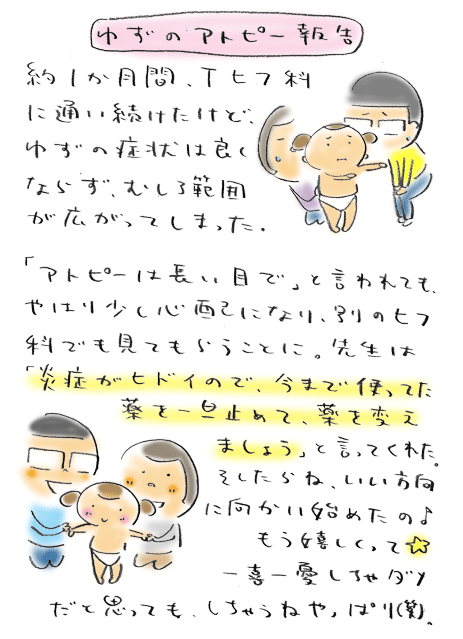 ゆずのアトピー報告
約1か月間、Tヒフ科
に通い続けたけど、
ゆずの症状は良く
ならず、むしろ範囲
が広がってしまった。
「アトピーは長い目で」と言われても、
やはり少し心配になり、別のヒフ
科でも見てもらうことに。先生は
「炎症がヒドイので、今まで使ってた
薬を一旦止めて、薬を変え
ましょう」と言ってくれた。
そしたらね、いい方向
に向かい始めたの♪
もう嬉しくって☆
一喜一憂しちゃダメ
だと思っても、しちゃうねやっぱり(笑)。